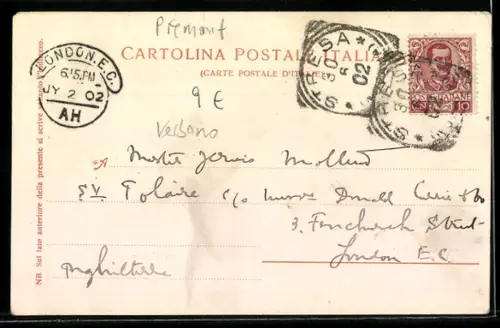 Piemont
CARTOLINA POSTALE ITALIANA
(CARTE POSTALE D'ITALIE)
LONDON.E.C.
6.15.PM
JY 2 02
AH
STRESA
30
6
02
STRESA
30
02
POSTE ITALIANE
CENT. 10
9 €
Verbano
A
Master Jervis
S.V. Polaire c/o Messrs Donald Currie & Co
3. Fenchurch Street
London E.C.
Inghilterra
NB. Sul lato anteriore della presente si scrive soltanto l'indirizzo.